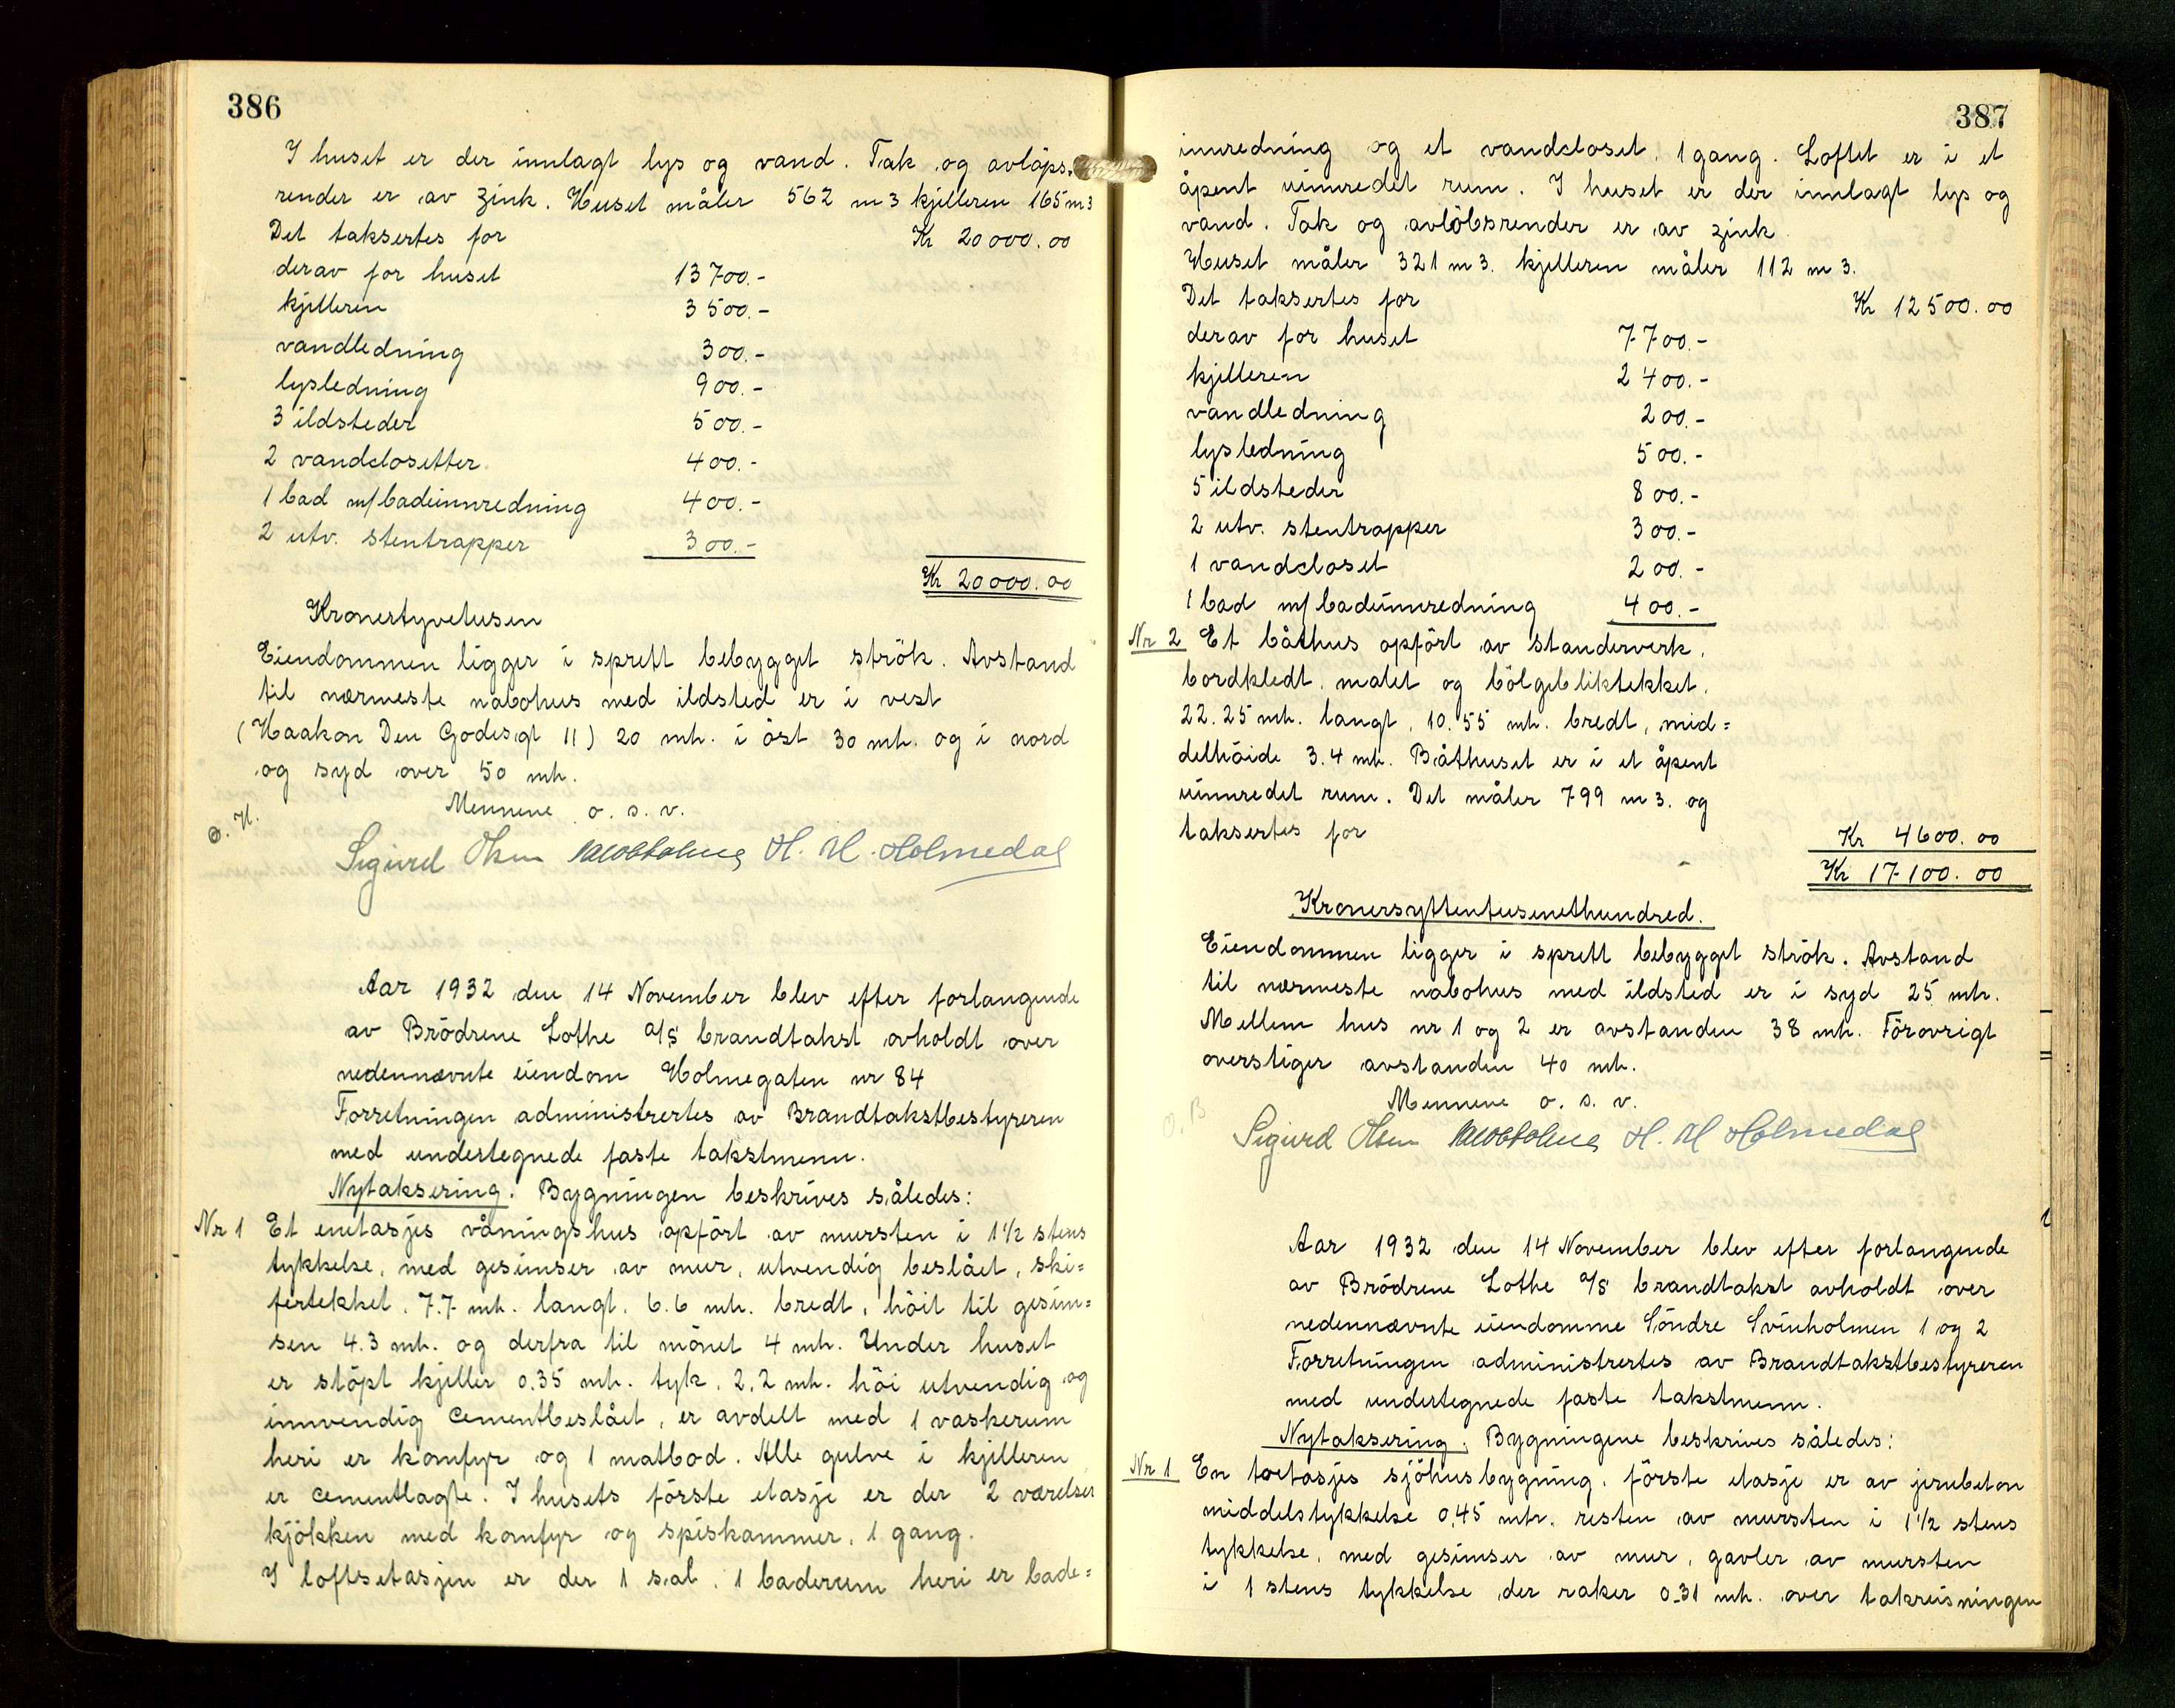 386
I huset er der innlagt lys og vand. Tak og avlöps.
render er av zink. Huset måler 562 m3 kjelleren 165 m3
Det taksertes for Kr 20000.00
derav for huset 13700.-
kjelleren 3500.-
vandledning 300.-
lysledning 900.-
3 ildsteder 500.-
2 vandclosetter 400.-
1 bad m/ badeinnredning 400.-
2 utv. stentrapper 300.-
Kr 20000.00
Kronertyvetusen
Eiendommen ligger i sprett bebygget strök. Avstand
til nærmeste nabohus med ildsted er i vest
(Haakon Den Godesgt 11) 20 mtr. i öst 30 mtr. og i nord
og syd over 50 mtr.
Mennene o. s. v.
Sigurd Olsen H. H. Holmedal
Aar 1932 den 14 November blev efter forlangende
av Brödrene Lothe A/S brandtakst avholdt over
nedennævnte eiendom Holmegaten nr 84
Forretningen administrertes av Brandtakstbestyreren
med undertegnede faste takstmenn.
Nytaksering. Bygningen beskrives således:
Nr 1 Et enetasjes våningshus opfört av mursten i 1 1/2 stens
tykkelse, med gesimser av mur, utvendig beslået, ski=
fertekket. 7.7 mtr. langt, 6.6 mtr. bredt, höit til gesim=
sen 4.3 mtr. og derfra til mönet 4 mtr. Under huset
er stöpt kjeller 0.35 mtr. tyk, 2.2 mtr. höi utvendig og
innvendig cementbeslået, er avdelt med 1 vaskerum
heri er komfyr og 1 matbod. Alle gulve i kjelleren
er cementlagte. I husets förste etasje er der 2 værelser
kjökken med komfyr og spiskammer, 1 gang.
I loftsetasjen er der 1 sal, 1 baderum heri er bade=
387
innredning og et vandcloset, 1 gang. Loftet er i et
åpent uinnredet rum. I huset er der innlagt lys og
vand. Tak og avlöbsrender er av zink
Huset måler 321 m3. kjelleren måler 112 m3.
Det taksertes for Kr 12500.00
derav for huset 7700.-
kjelleren 2400.-
vandledning 200.-
lysledning 500.-
5 ildsteder 800.-
2 utv. stentrapper 300.-
1 vandcloset 200.-
1 bad m/ badeinnredning 400.-
Nr 2 Et båthus opfört av standerverk,
bordkledt, malet og bölgebliktekket.
22.25 mtr. langt, 10.55 mtr. bredt, mid=
delhöide 3.4 mtr. Båthuset er i et åpent
uinnredet rum. Det måler 799 m3. og
taksertes for Kr 4600.00
Kr 17100.00
Kronersyttentusenethundred.
Eiendommen ligger i sprett bebygget strök. Avstand
til nærmeste nabohus med ildsted er i syd 25 mtr.
Mellem hus nr 1 og 2 er avstanden 38 mtr. Förovrigt
overstiger avstanden 40 mtr.
Mennene o. s. v.
O. B
Sigurd Olsen H. H Holmedal
Aar 1932 den 14 November blev efter forlangende
av Brödrene Lothe A/S brandtakst avholdt over
nedennævnte eiendomme Söndre Svinholmen 1 og 2
Forretningen administrertes av Brandtakstbestyreren
med undertegnede faste takstmenn.
Nytaksering. Bygningene beskrives således:
Nr 1 En toetasjes sjöhusbygning, förste etasje er av jernbeton
middelstykkelse 0,45 mtr. resten av mursten i 1 1/2 stens
tykkelse, med gesimser av mur, gavler av mursten
i 1 stens tykkelse der raker 0.31 mtr. over takreisningen